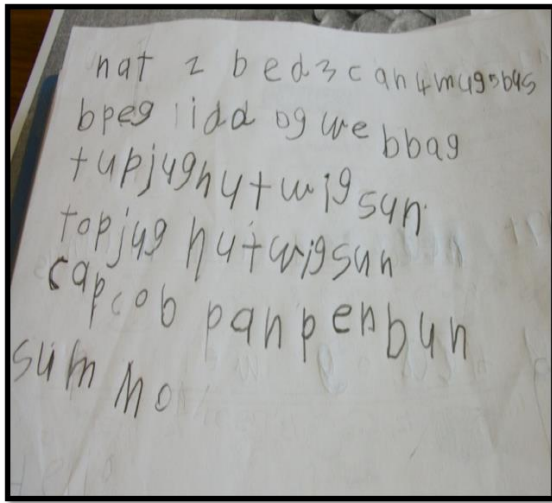 hat 2 bed3can4mug5bus
bpeg lidd og we bbag
tupjughutwigsun
topjug hutwigsun
capcob panpenbun
sum mo